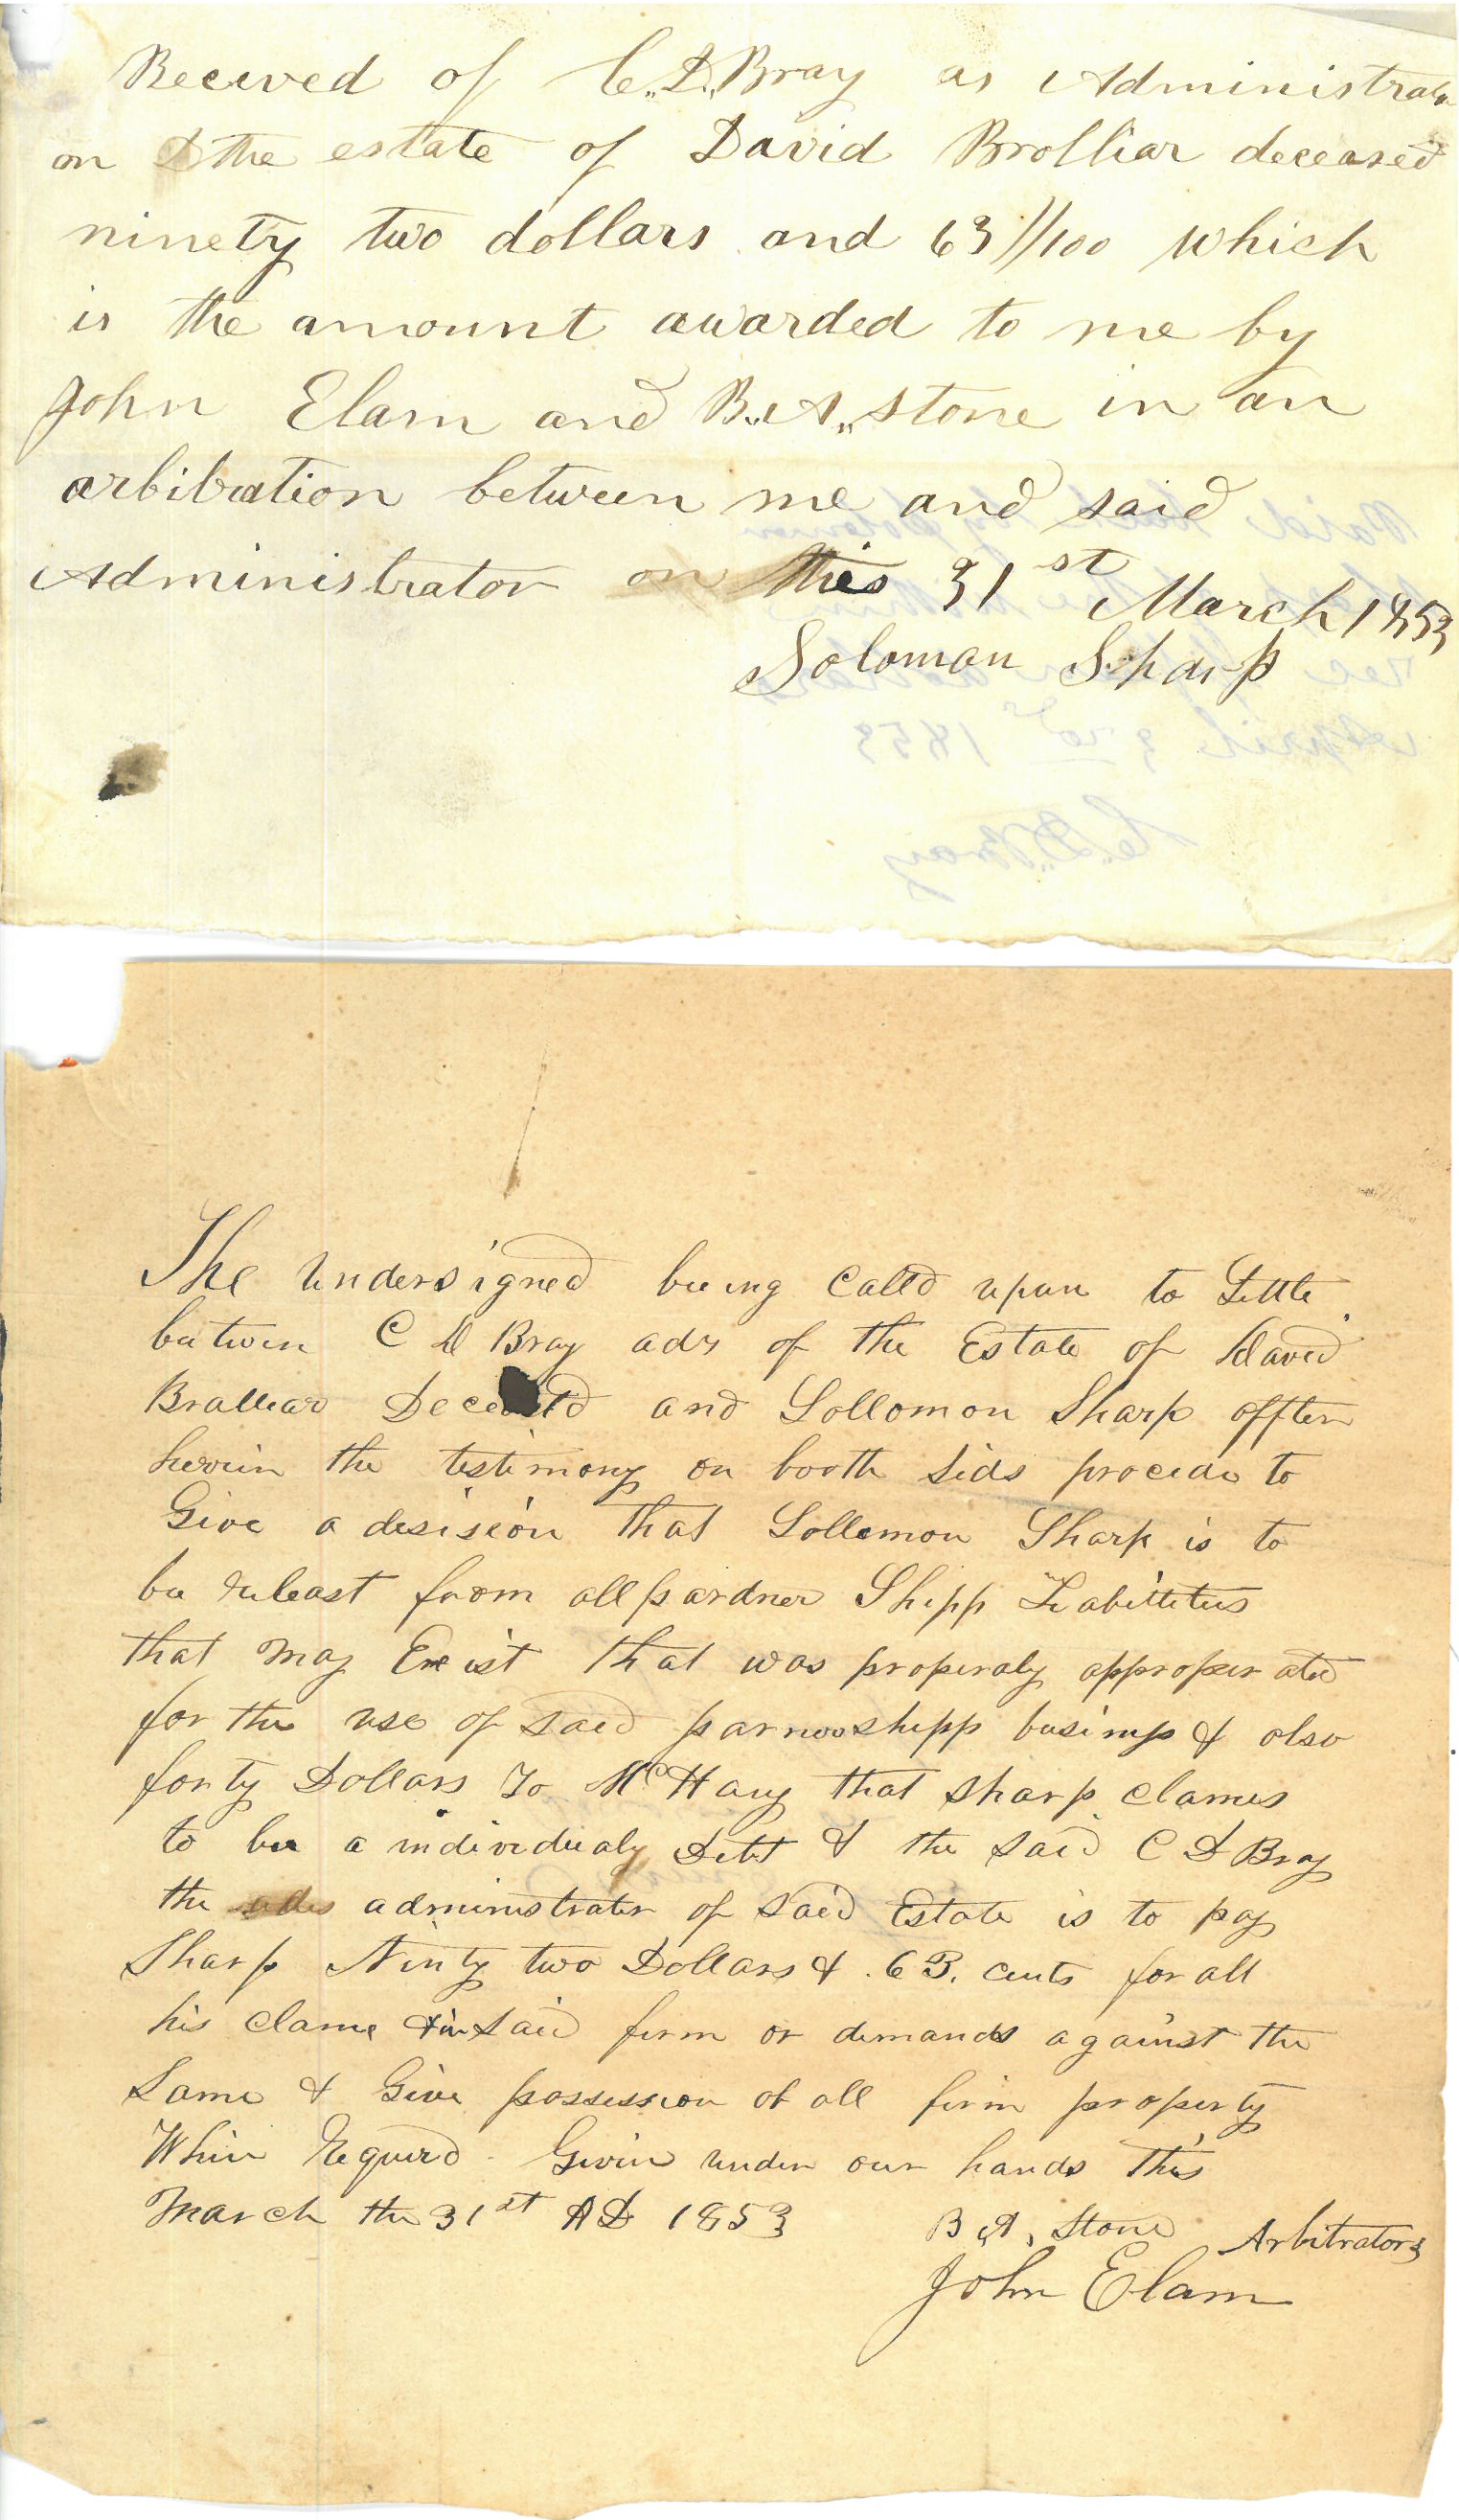 Recived of C.D. Bray as Administrator
on the estate of David Brolliar deceased
ninety two dollars and 63//100 which
is the amount awarded to me by
John Elam and B.A. Stone in an
arbitration between me and said
Administrator on this 31st March 1853
Soloman Sharp
April 3rd 1853
C.D. Bray
The undersigned beeing Calld upon to Settle
between C D Bray adr of the Estate of David
Bralliar and Sollomon Sharp affter
herein the testimony on booth sids procede to
Give a desision that Sollemon Sharp is to
be releast from all pardner Shipp Liabillities
that may Exeist that was properaly approperated
for the use of said parnership business & also
forty Dollars To McHany that Sharp clames
to bee a individualy Debt & the said C D Bray
the administrator of said Estate is to pay
Sharp Ninty two Dollars & .63. cents for all
his clame in said firm or demands against the
Same & Give possession of all firm property
When Requird. Given under our hands this
March the 31st AD 1853 B,A, Stone Arbitrators
John Elam